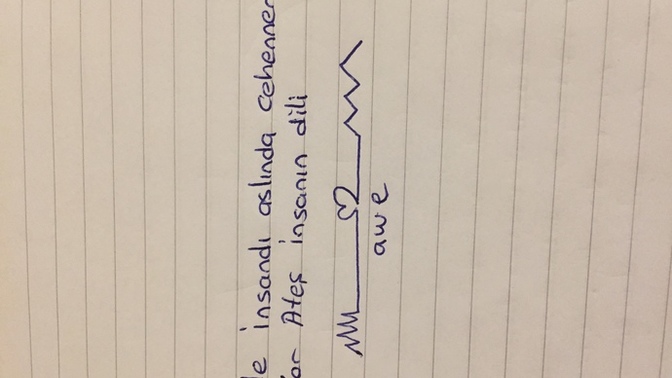 insandı aslında cehennem
Ateş insanın dili
awe